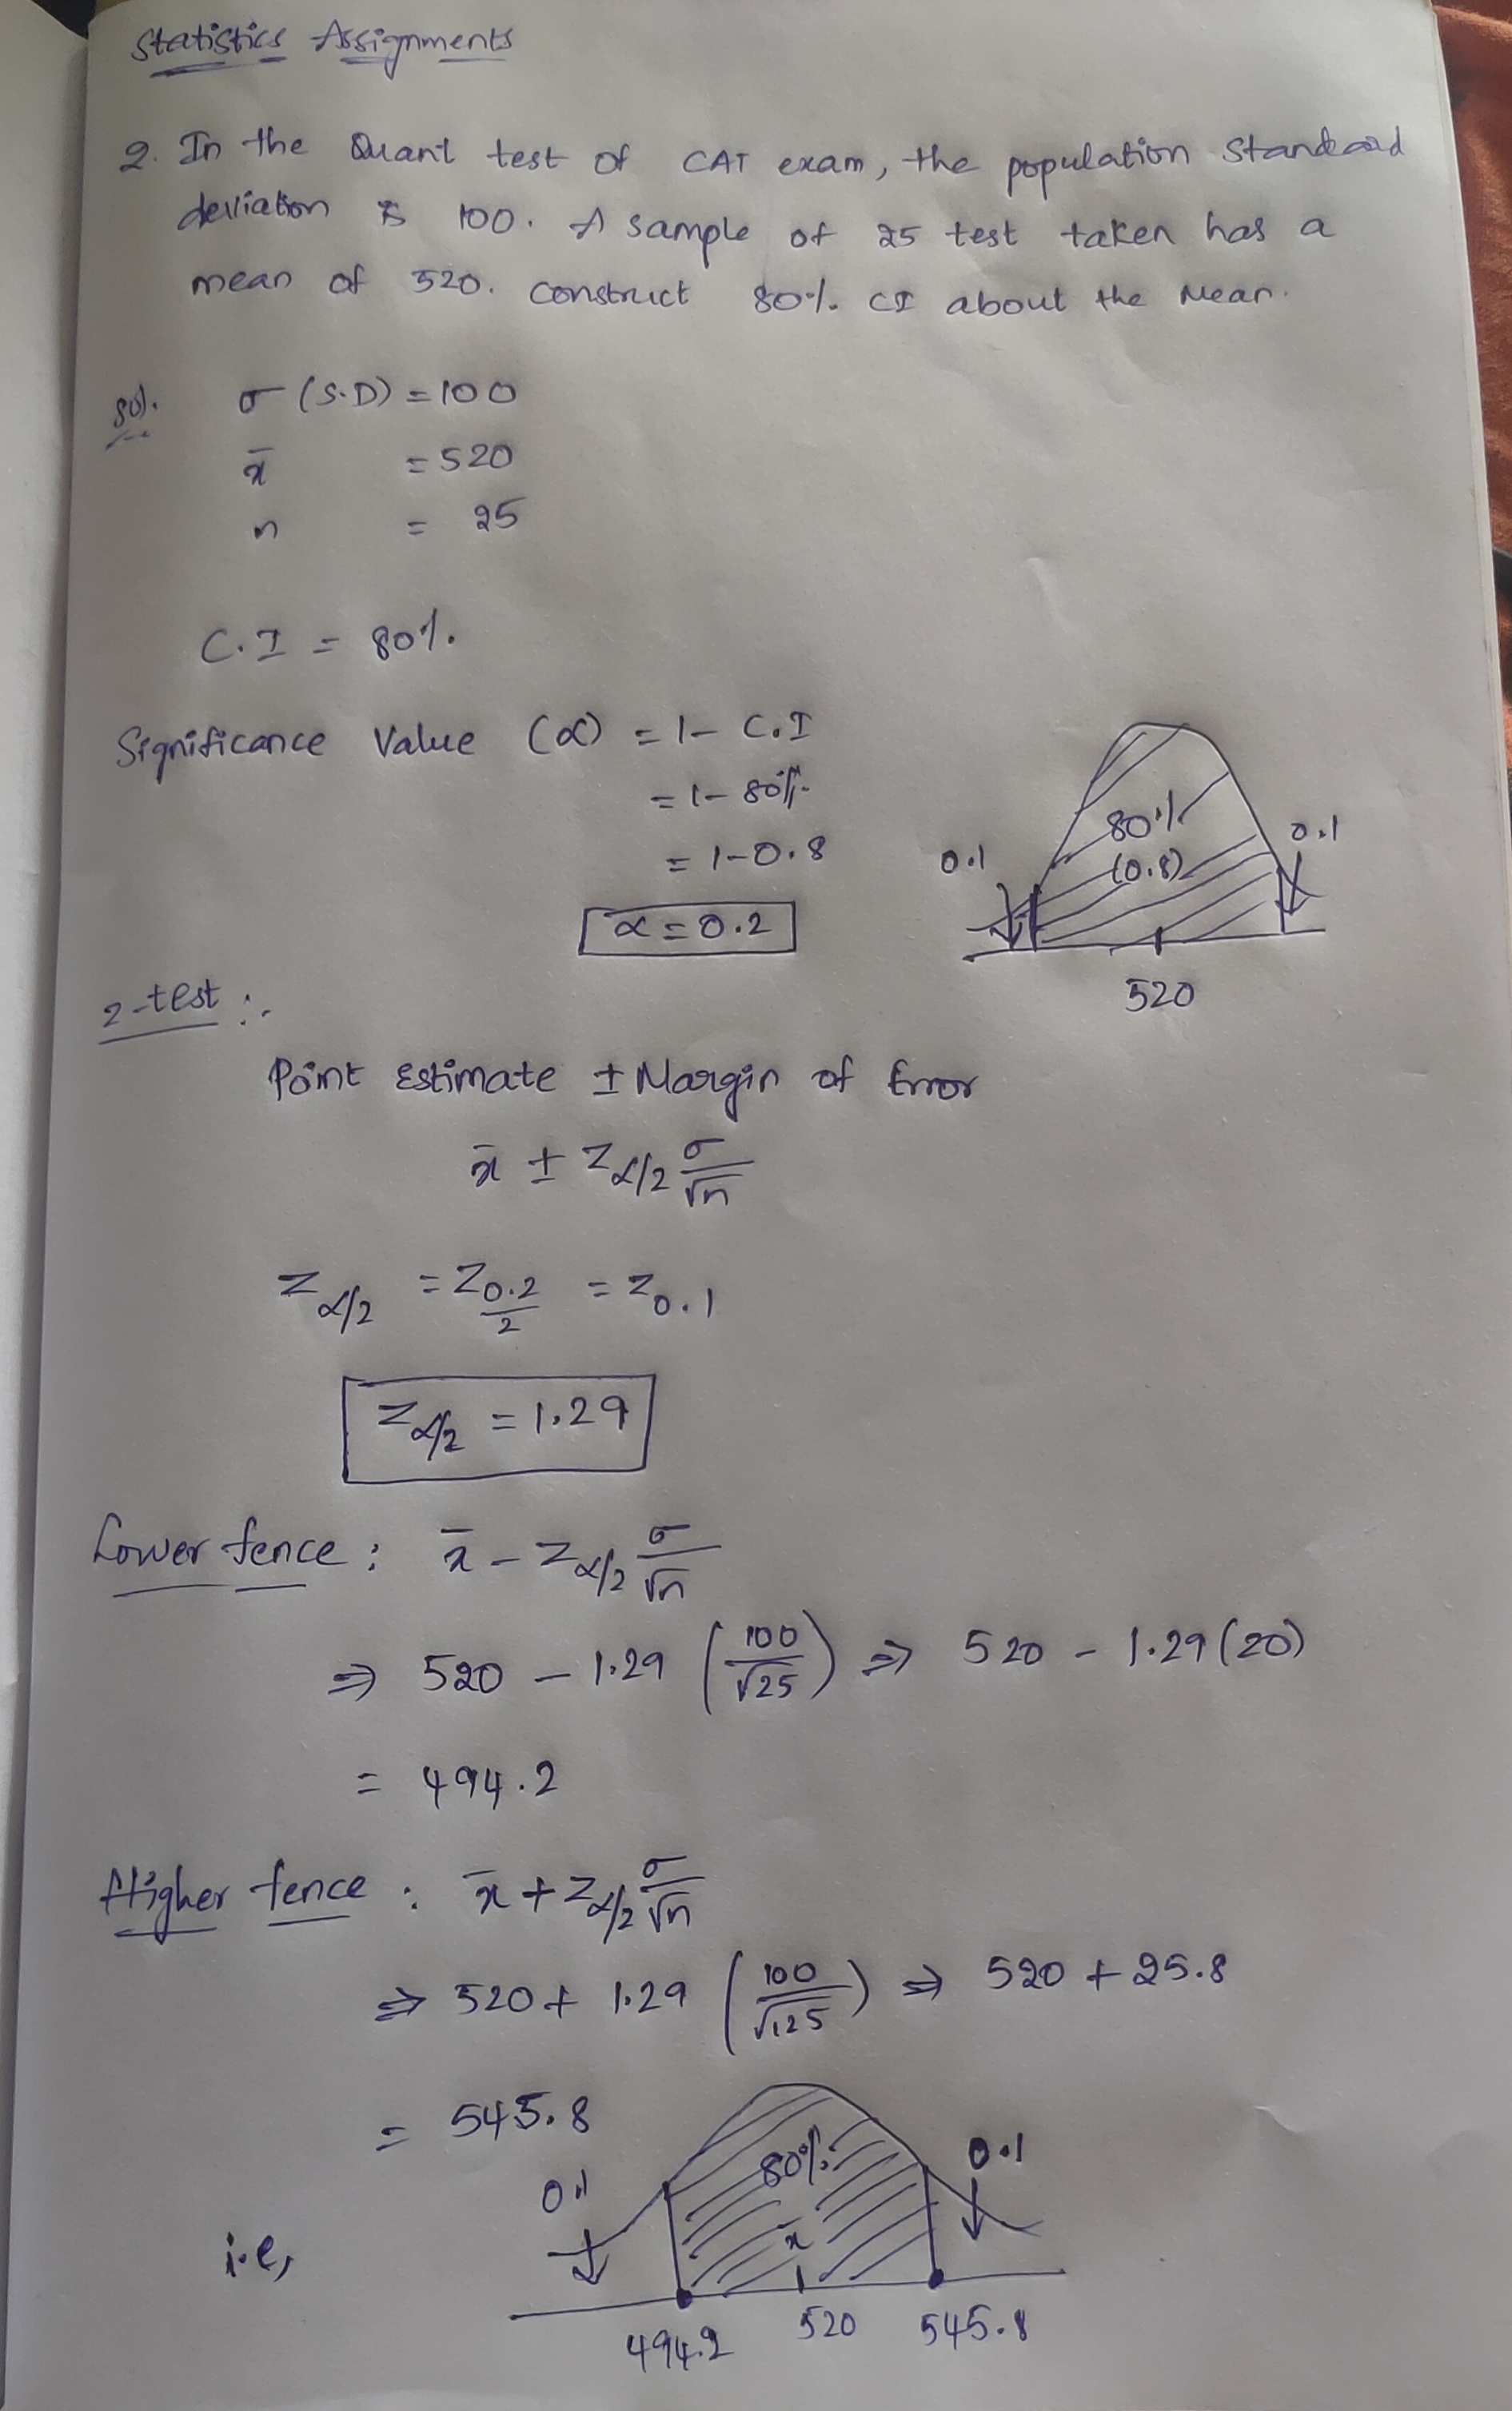 Statistics Assignments
2. In the Quant test of CAT exam, the population Standard
deviation is 100. A sample of 25 test taken has a
mean of 520. construct 80%. CI about the Mean.
Sol.
σ (S.D) = 100
x̄ = 520
n = 25
C.I = 80%.
Significance Value (α) = 1 - C.I
= 1 - 80%
= 1 - 0.8
α = 0.2
0.1
80%
(0.8)
0.1
520
Z-test :.
Point Estimate ± Margin of Error
x̄ ± Zα/2 σ/√n
Zα/2 = Z0.2/2 = Z0.1
Zα/2 = 1.29
Lower fence : x̄ - Zα/2 σ/√n
⇒ 520 - 1.29 (100/√25) ⇒ 520 - 1.29(20)
= 494.2
Higher fence : x̄ + Zα/2 σ/√n
⇒ 520 + 1.29 (100/√125) ⇒ 520 + 25.8
= 545.8
i.e,
0.1
80%
0.1
x̄
494.2 520 545.8